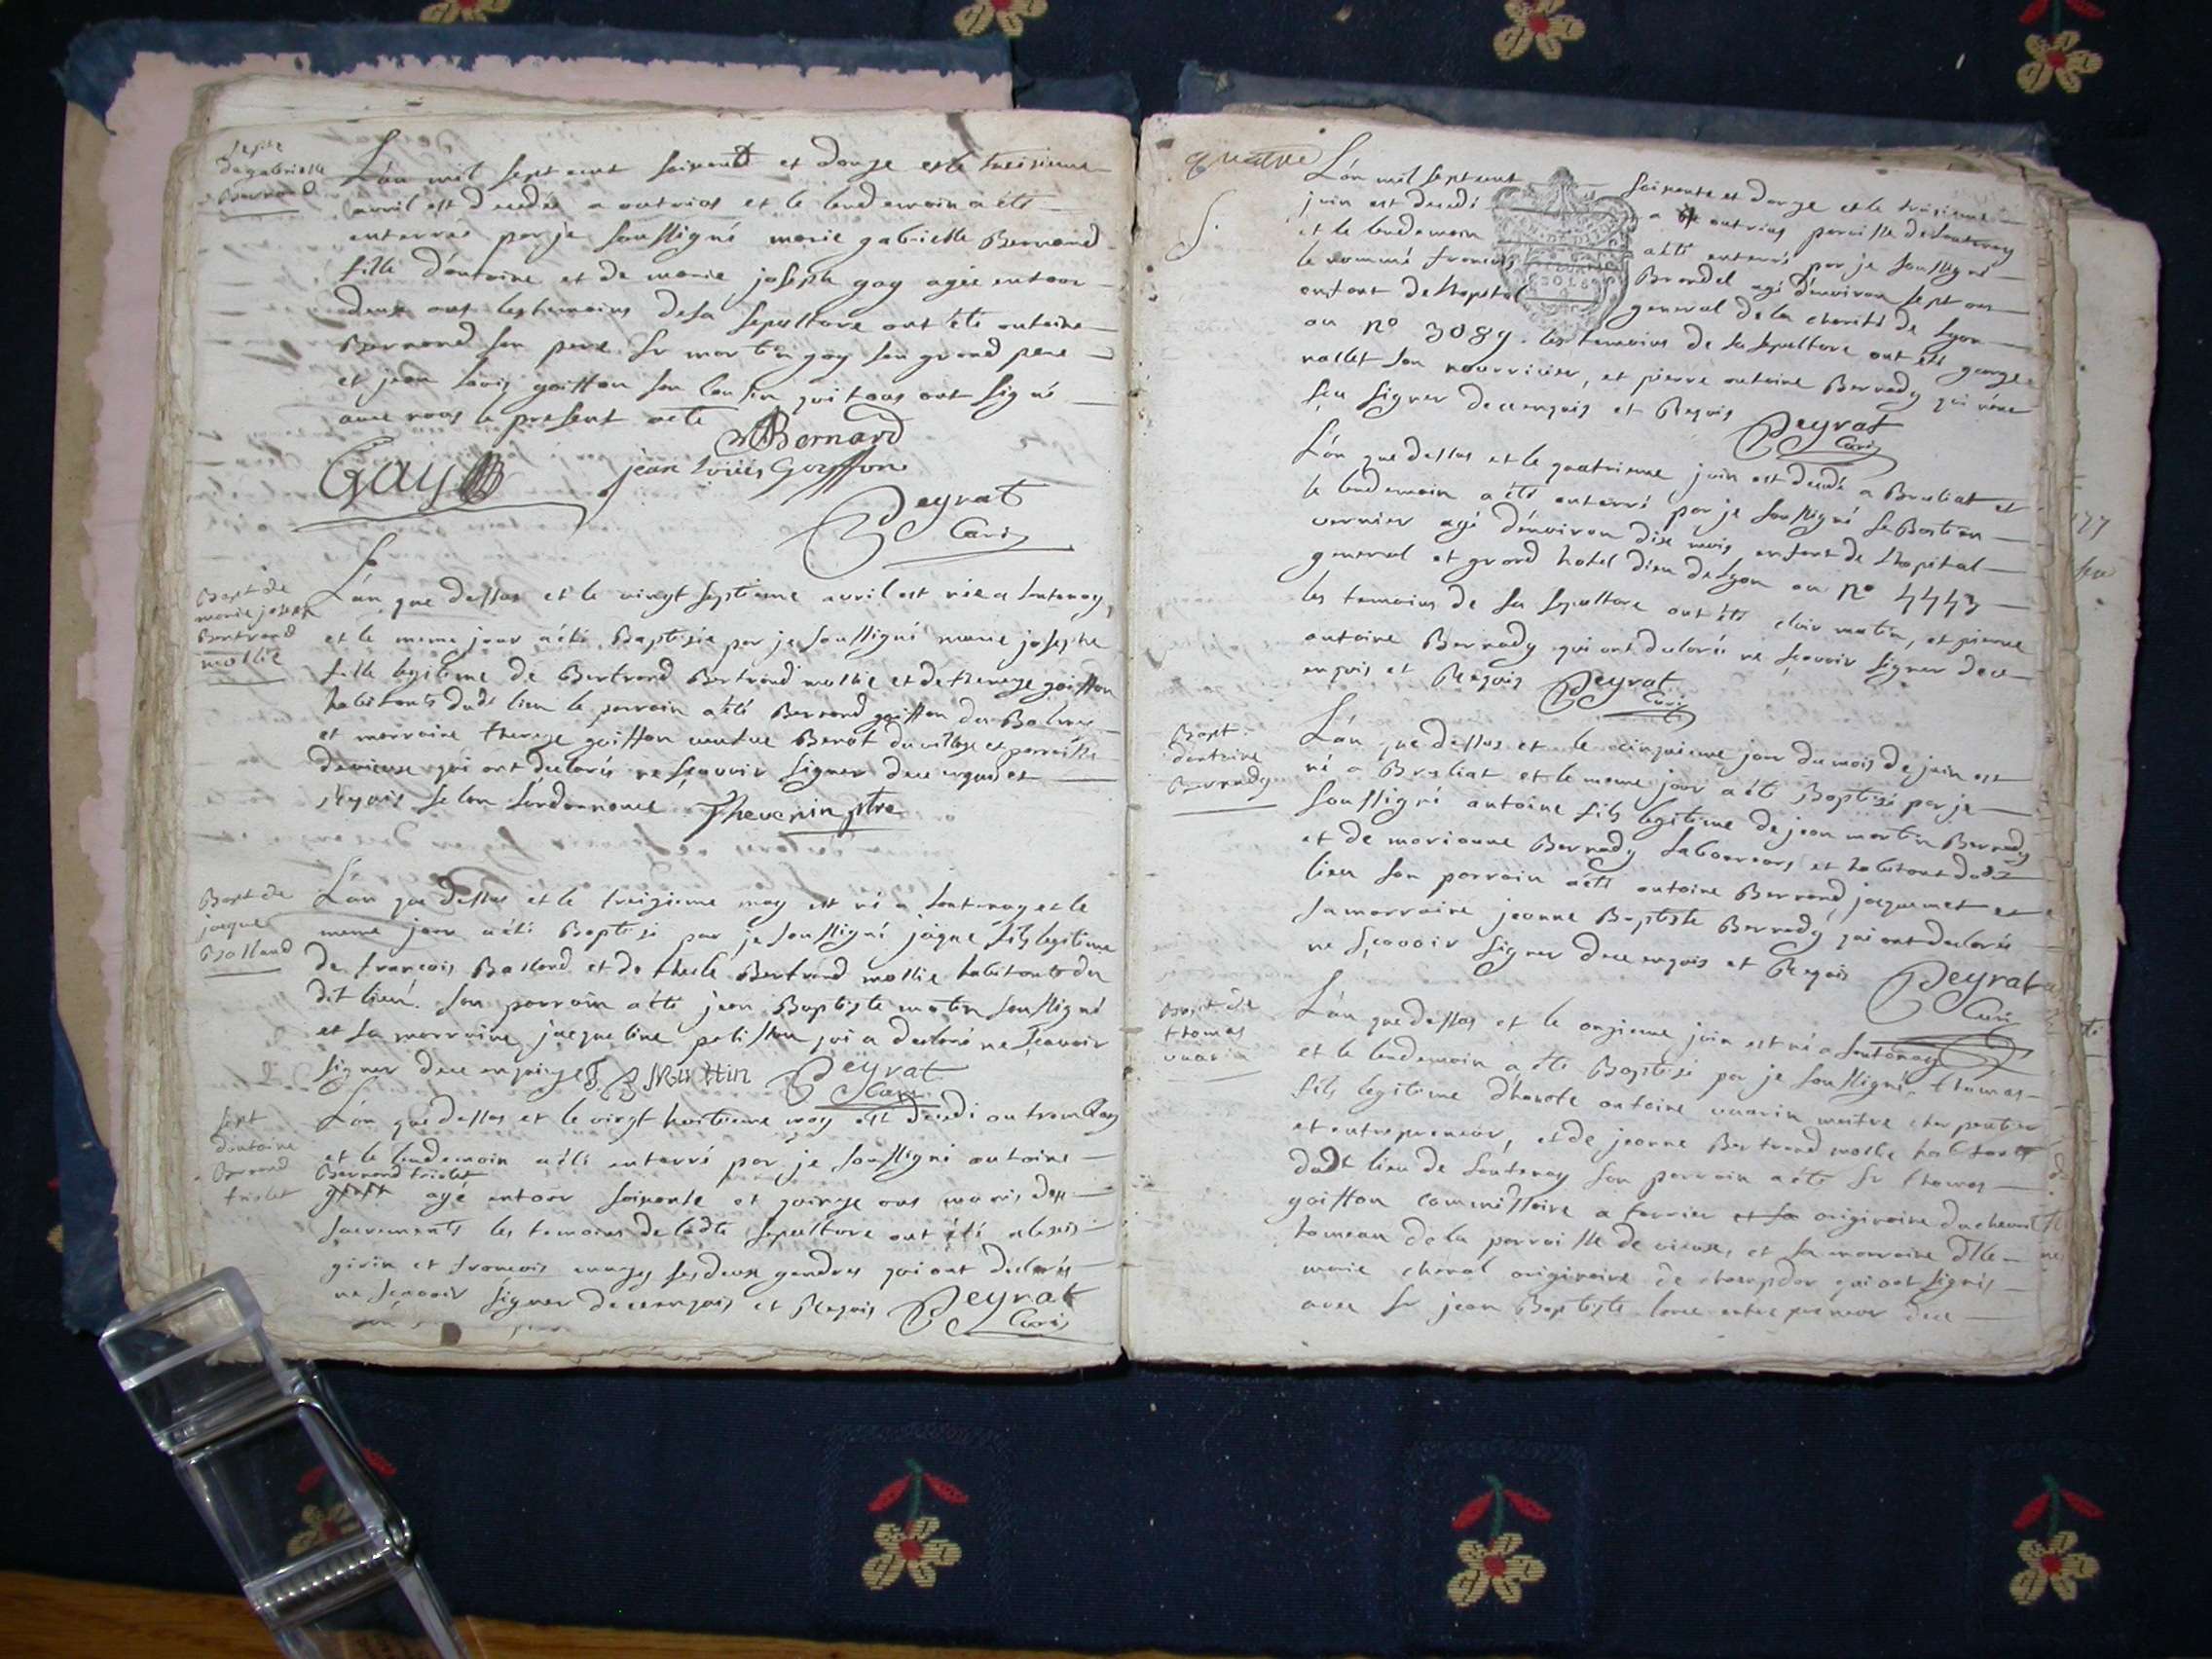 Sepre
de gabrielle
Bernard
L'an mil sept cent soixante et douze et le treizieme
avril est decedée a outrias et le lendemain a été
enterrée par je soussigné marie gabrielle Bernard
fille d'antoine et de marie joseph gay agée entour
deux ans les temoins de sa sepulture ont été antoine
Bernard son pere Sr martin gay son grand pere
et jean louis goiffon son cousin qui tous ont signé
avec nous le present acte
Bernard
Gay
jean louis Goiffon
Peyrat
Curé
Bapt de
marie joseph
Bertrand
mollie
L'an que dessus et le vingt septieme avril est née a Soutenay
et le meme jour a été Baptisée par je soussigné marie josephe
fille legitime de Bertrand Bertrand mollie et de thereze goiffon
habitants dudt lieu le parrain a été Bernard goiffon du Balmey
et marraine thereze goiffon veuve Benot du village et parroisse
de vieux qui ont declarés ne sçavoir signer de ce enquis et
requis selon l'ordonnance Thevenin ptre
Bapt de
jacque
Balland
L'an que dessus et le treizieme may est né a Soutenay et le
meme jour a été Baptisé par je soussigné jaque fils legitime
de francois Balland et de Bertrand mollie habitants du
dit lieu. son parrain a été jean Baptiste matin soussigné
et sa marraine jacqueline qui a declaré ne sçavoir
signer de ce enquise J B Mattin Peyrat
Curé
sept
dantoine
Bernand
triolet
L'an que dessus et le vingt huitieme may est decedé au tremblay
et le lendemain a été enterré par je soussigné antoine
Bernand triolet
agé entour soixante et quinze ans muni des
sacrements les temoins de ladte sepulture ont été alexis
girin et francois ses deux gendres qui ont declarés
ne sçavoir signer de ce enquis et Requis Peyrat
Curé
quatre
L'an mil sept cent soixante et douze et le troisieme
juin est decedé a outrias paroisse de Soutenay
et le lendemain a été enterré par je soussigné
le nommé francois Brondel agé d'environ sept ans
enfant de l'hopital general de la charité de Lyon
au no 3089. les temoins de sa sepulture ont été george
nallet son nourricier, et pierre antoine Bernady qui n'ont
sçu signer de ce enquis et Requis Peyrat
Curé
S.
L'an que dessus et le quatrieme juin est decedé a Brenliat et
le lendemain a été enterré par je soussigné se Bastien
vernier agé d'environ dix mois, enfant de l'hopital
general et grand hotel dieu de Lyon au no 4443
les temoins de sa sepulture ont été clair matin, et pierre
antoine Bernady qui ont declarés ne sçavoir signer de ce
enquis et Requis Peyrat
Curé
Bapt.
dantoine
Bernady
L'an que dessus et le cinquieme jour du mois de juin est
né a Brenliat et le meme jour a été Baptisé par je
soussigné antoine fils legitime de jean martin Bernady
et de marianne Bernady laboureurs et habitant dudt
lieu son parrain a été antoine Bernand jacquemet et
sa marraine jeanne Baptiste Bernady qui ont declarés
ne sçavoir signer de ce enquis et Requis Peyrat
Curé
Bapt de
thomas
vuarin
L'an que dessus et le onzieme juin est né a Soutenay
et le lendemain a été Baptisé par je soussigné, thomas
fils legitime d'honote antoine vuarin maitre charpentier
et entrepreneur, et de jeanne Bertrand mollie habitants
dudt lieu de Soutenay son parrain a été Sr thomas
goiffon commissaire a terrier et sa originaire du
de la parroisse de vieux, et sa marraine dlle
marie originaire de champdor qui ont signés
avec Sr jean Baptiste entrepreneur de ce